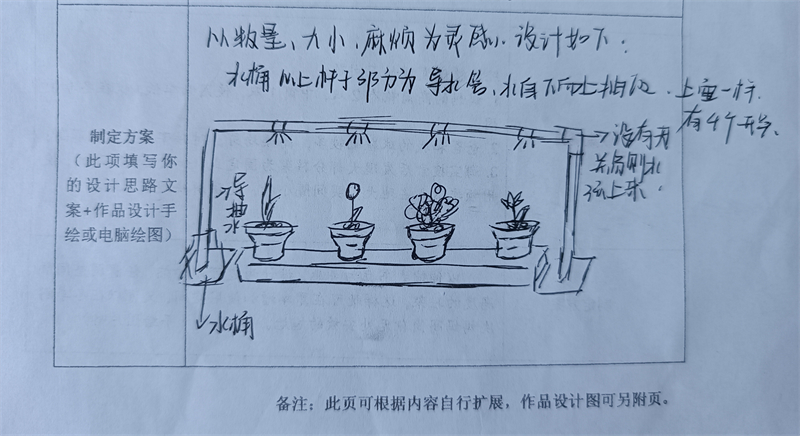 以数量、大小、麻烦为灵感。设计如下：
水桶以上杆子部分为导水管，水自下而上抽取。上面一株
有4个开头、
制定方案
（此项填写你
的设计思路文
案+作品设计手
绘或电脑绘图）
导
抽
水
没有开
关
水桶
备注：此页可根据内容自行扩展，作品设计图可另附页。